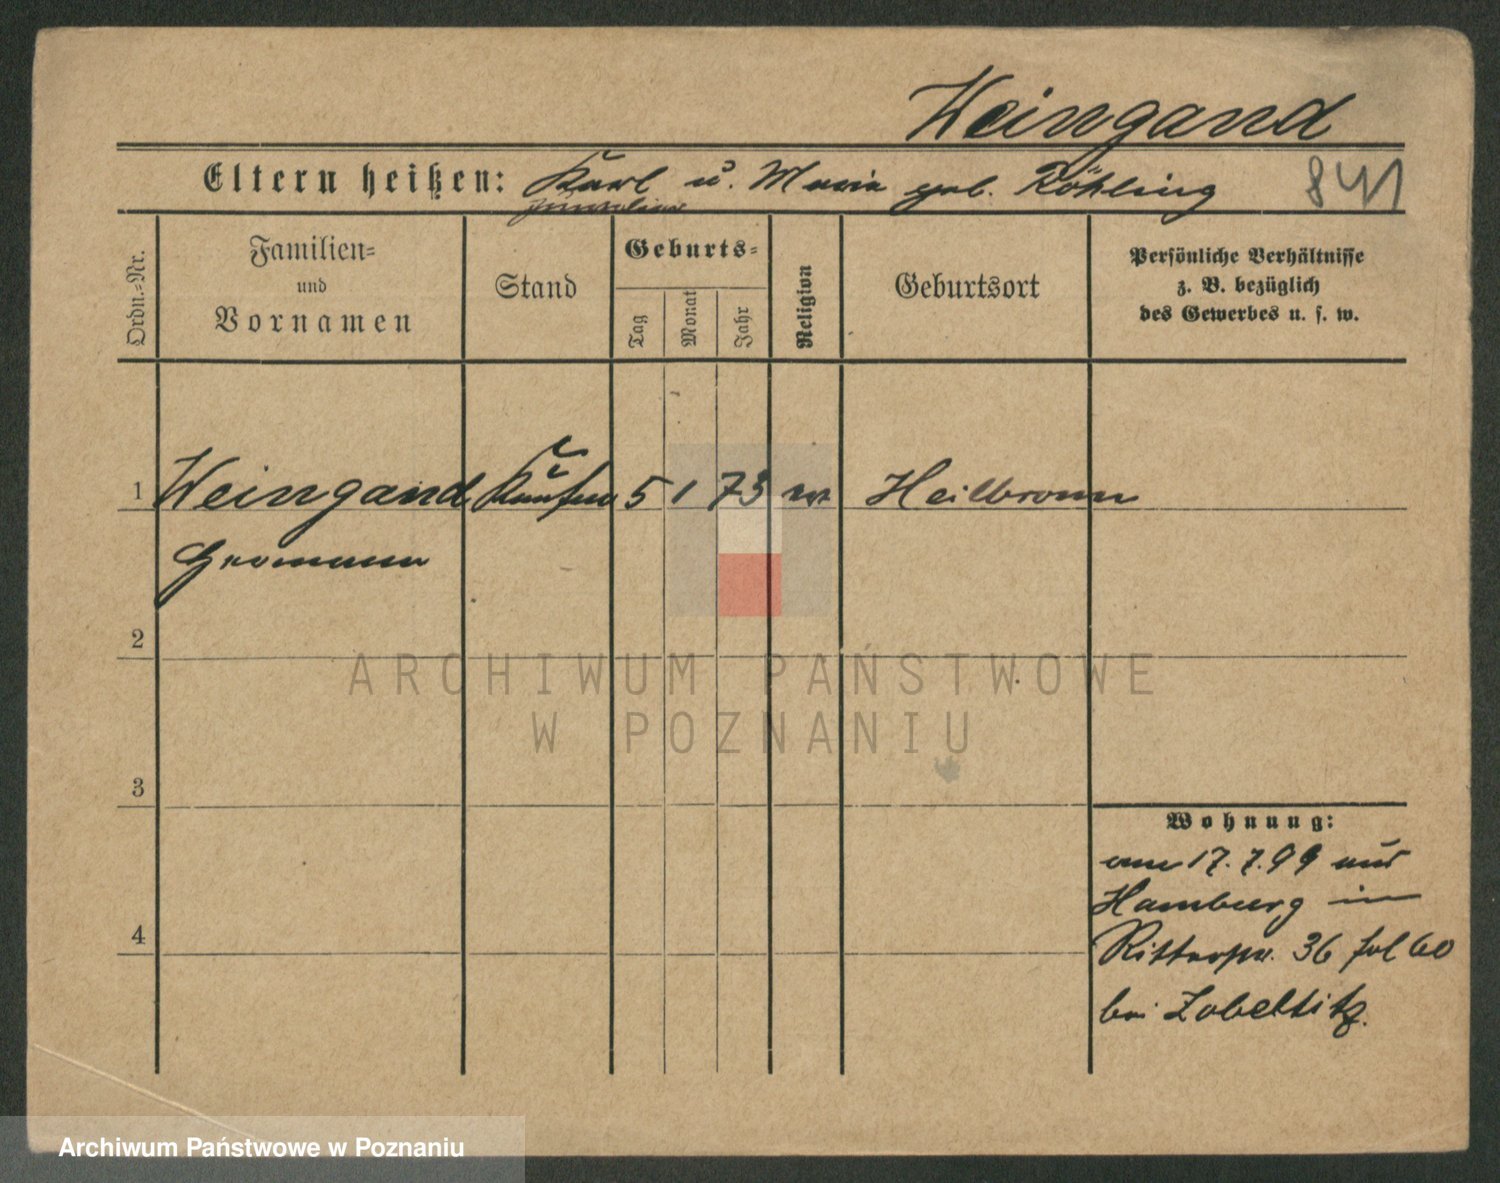 Weingand
Eltern heißen: Karl u. Maria geb. Röhling
841
Ordn.-Nr.
Familien-
und
Vornamen
Stand
Geburts-
Tag
Monat
Jahr
Religion
Geburtsort
Persönliche Verhältnisse
z. B. bezüglich
des Gewerbes u. s. w.
1 Weingand Kaufm 5 1 73 ev Heilbronn
Hermann
2
ARCHIWUM PAŃSTWOWE
W POZNANIU
3
Wohnung:
am 17.7.99 aus
Hamburg in
Ritterstr. 36 fol 60
4
bei Zobeltitz.
Archiwum Państwowe w Poznaniu